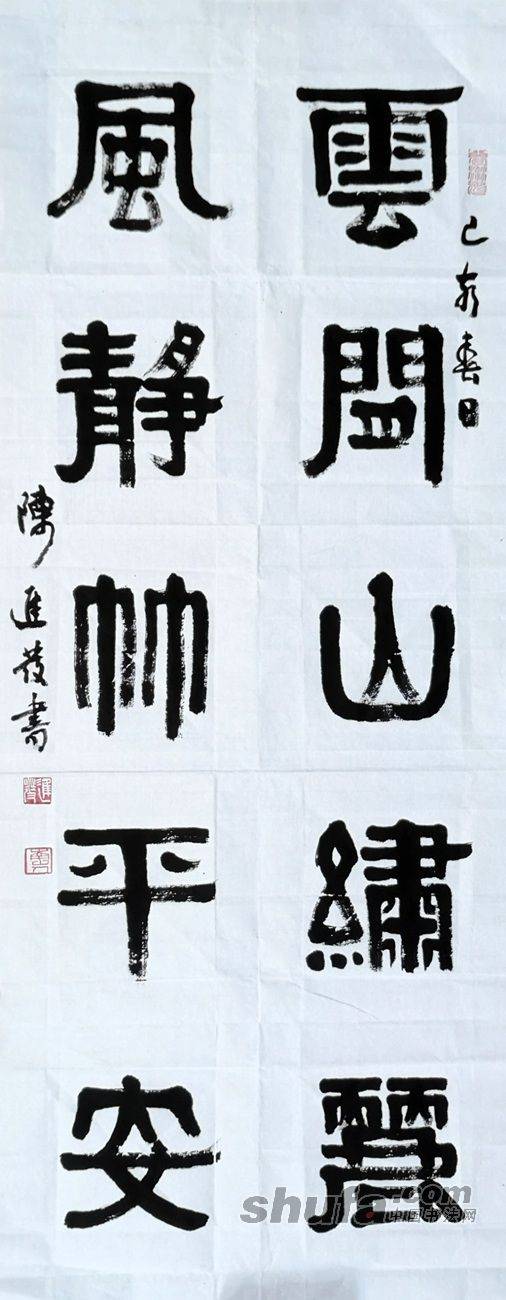 己亥春日
雲開山繡麗
風靜竹平安
陳進發書
shufa.com
中国书法网